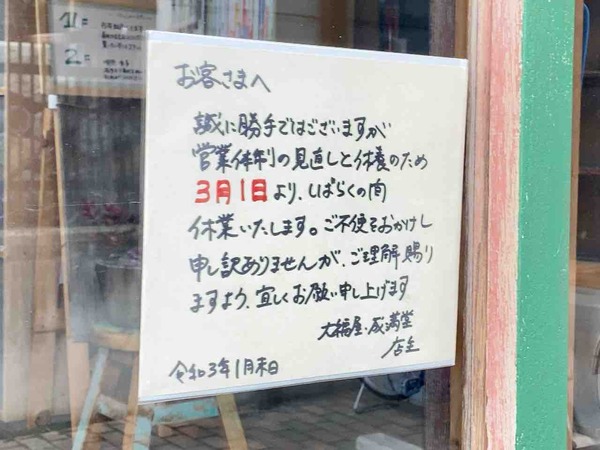 1F
2F
お客さまへ
誠に勝手ではございますが
営業体制の見直しと休養のため
3月1日より、しばらくの間
休業いたします。ご不便をおかけし
申し訳ありませんが、ご理解賜り
ますよう、宜しくお願い申し上げます
大福屋・成満堂
店主
令和3年1月末日